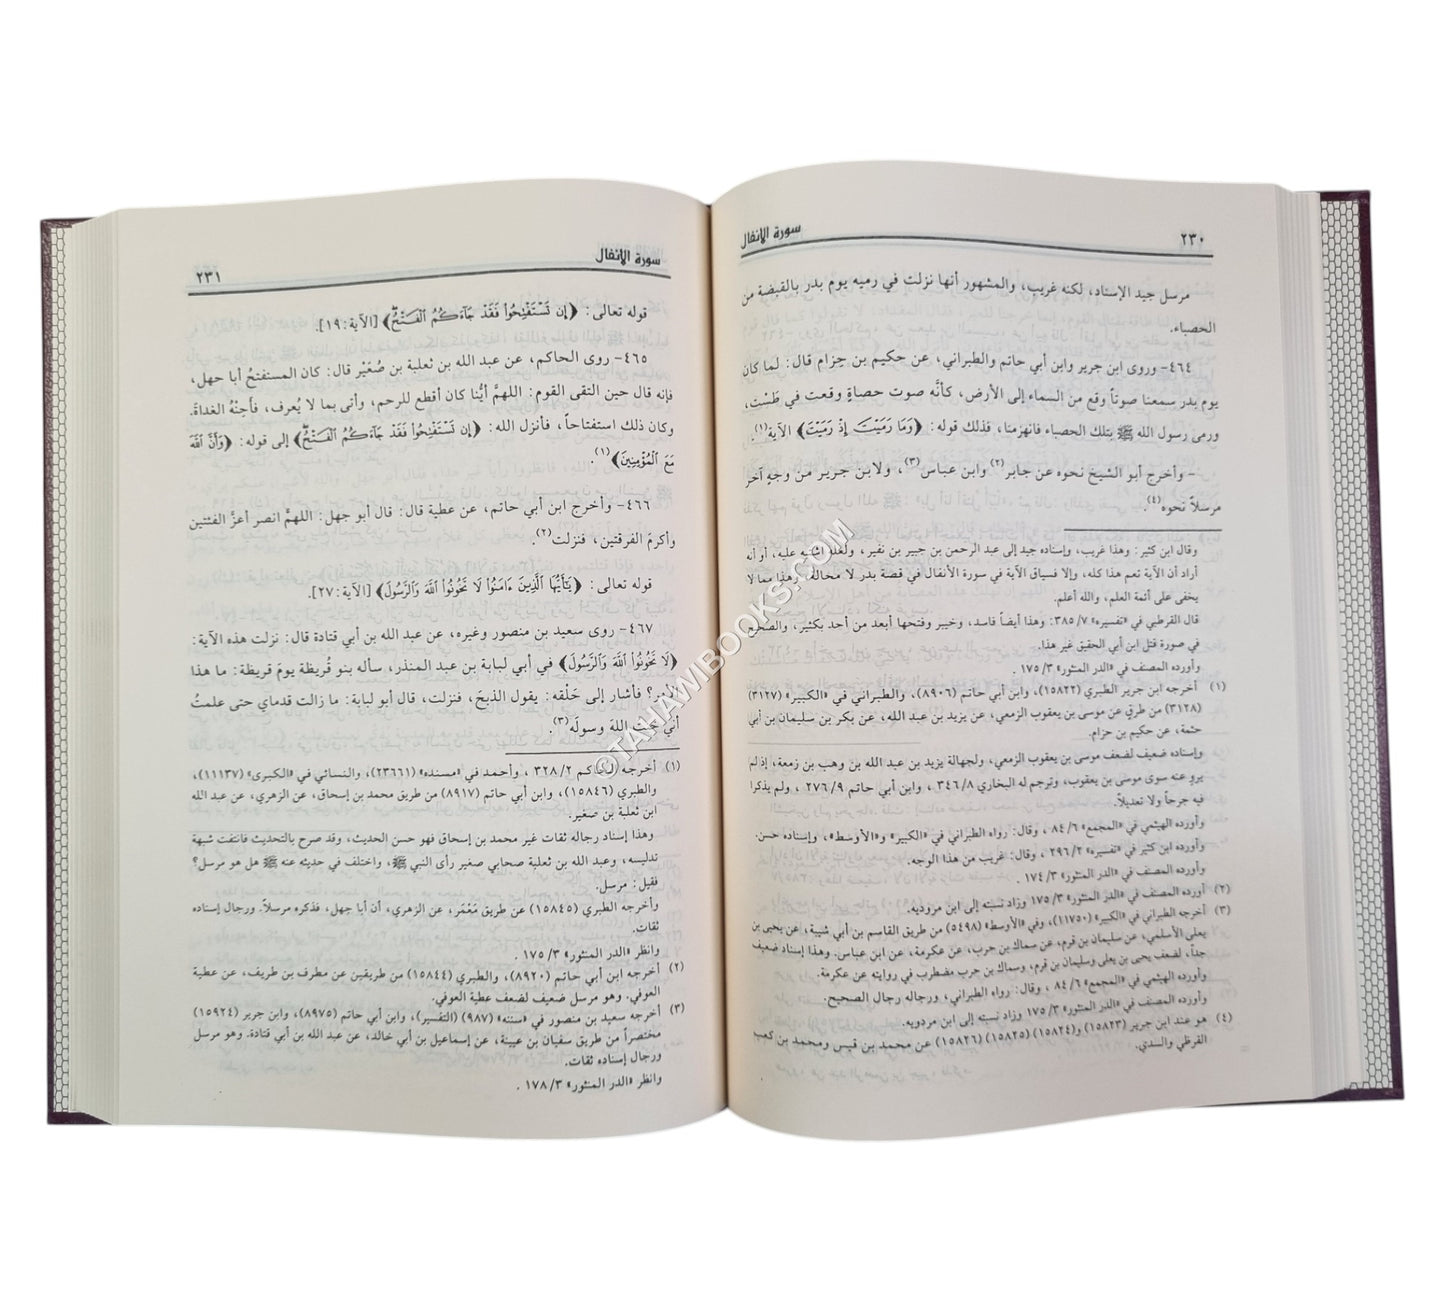 ٢٣٠
سورة الأنفال
مرسل جيد الإسناد، لكنه غريب، والمشهور أنها نزلت في رميه يوم بدر بالقبضة من
الحصباء.
٤٦٤- وروى ابن جرير وابن أبي حاتم والطبراني، عن حكيم بن حِزام قال: لما كان
يوم بدر سمعنا صوتاً وقع من السماء إلى الأرض، كأنَّه صوت حصاةٍ وقعت في طَسْت،
ورمى رسول الله ﷺ بتلك الحصباء فانهزمنا، فذلك قوله: ﴿وَمَا رَمَيْتَ إِذْ رَمَيْتَ﴾ الآية(١).
- وأخرج أبو الشيخ نحوه عن جابر(٢) وابن عباس(٣)، ولابن جرير من وجهٍ آخر
مرسلاً نحوه(٤).
وقال ابن كثير: وهذا غريب، وإسناده جيد إلى عبد الرحمن بن جبير بن نفير، ولعله اشتبه عليه، أو أنه
أراد أن الآية تعم هذا كله، وإلا فسياق الآية في سورة الأنفال في قصة بدر لا محالة، وهذا مما لا
يخفى على أئمة العلم، والله أعلم.
قال القرطبي في «تفسيره» ٣٨٥/٧: وهذا أيضاً فاسد، وخيبر وفتحها أبعد من أحد بكثير، والصحيح
في صورة قتل ابن أبي الحقيق غير هذا.
وأورده المصنف في «الدر المنثور» ١٧٥/٣.
(١) أخرجه ابن جرير الطبري (١٥٨٢٢)، وابن أبي حاتم (٨٩٠٦)، والطبراني في «الكبير» (٣١٢٧)
(٣١٢٨) من طرقٍ عن موسى بن يعقوب الزمعي، عن يزيد بن عبد الله، عن بكر بن سليمان بن أبي
حثمة، عن حكيم بن حزام.
وإسناده ضعيف لضعف موسى بن يعقوب الزمعي، ولجهالة يزيد بن عبد الله بن وهب بن زمعة، إذ لم
يروِ عنه سوى موسى بن يعقوب، وترجم له البخاري ٣٤٦/٨، وابن أبي حاتم ٢٧٦/٩، ولم يذكرا
فيه جرحاً ولا تعديلاً.
وأورده الهيثمي في «المجمع» ٨٤/٦، وقال: رواه الطبراني في «الكبير» و«الأوسط»، وإسناده حسن.
وأورده ابن كثير في «تفسيره» ٢٩٦/٢، وقال: غريب من هذا الوجه.
وأورده المصنف في «الدر المنثور» ١٧٤/٣.
(٢) أورده المصنف في «الدر المنثور» ١٧٥/٣ وزاد نسبته إلى ابن مردويه.
(٣) أخرجه الطبراني في «الكبير» (١١٧٥٠)، وفي «الأوسط» (٥٤٩٨) من طريق القاسم بن أبي شيبة، عن يحيى بن
يعلى الأسلمي، عن سليمان بن قرم، عن سماك بن حرب، عن عكرمة، عن ابن عباس. وهذا إسناد ضعيف
جداً، لضعف يحيى بن يعلى وسليمان بن قرم، وسماك بن حرب مضطرب في روايته عن عكرمة.
وأورده الهيثمي في «المجمع» ٨٤/٦، وقال: رواه الطبراني، ورجاله رجال الصحيح.
وأورده المصنف في «الدر المنثور» ١٧٥/٣ وزاد نسبته إلى ابن مردويه.
(٤) هو عند ابن جرير (١٥٨٢٣) و(١٥٨٢٤) (١٥٨٢٥) (١٥٨٢٦) عن محمد بن قيس ومحمد بن كعب
القرظي والسدي.
سورة الأنفال
٢٣١
قوله تعالى: ﴿إِن تَسْتَفْتِحُوا۟ فَقَدْ جَآءَكُمُ ٱلْفَتْحُ﴾ [الآية: ١٩].
٤٦٥- روى الحاكم، عن عبد الله بن ثعلبة بن صُعَيْر قال: كان المستفتحُ أبا جهل،
فإنه قال حين التقى القوم: اللهمَّ أيُّنا كان أقطع للرحم، وأتى بما لا يُعرف، فأحِنْهُ الغداةَ.
وكان ذلك استفتاحاً، فأنزل الله: ﴿إِن تَسْتَفْتِحُوا۟ فَقَدْ جَآءَكُمُ ٱلْفَتْحُ﴾ إلى قوله: ﴿وَأَنَّ ٱللَّهَ
مَعَ ٱلْمُؤْمِنِينَ﴾(١).
٤٦٦- وأخرج ابن أبي حاتم، عن عطية قال: قال أبو جهل: اللهمَّ انصر أعزَّ الفئتين
وأكرمَ الفرقتين، فنزلت(٢).
قوله تعالى: ﴿يَٰٓأَيُّهَا ٱلَّذِينَ ءَامَنُوا۟ لَا تَخُونُوا۟ ٱللَّهَ وَٱلرَّسُولَ﴾ [الآية: ٢٧].
٤٦٧- روى سعيد بن منصور وغيره، عن عبد الله بن أبي قتادة قال: نزلت هذه الآية:
﴿لَا تَخُونُوا۟ ٱللَّهَ وَٱلرَّسُولَ﴾ في أبي لبابة بن عبد المنذر، سأله بنو قُريظة يومَ قريظة: ما هذا
الأمر؟ فأشار إلى حَلْقه: يقول الذبحَ، فنزلت، قال أبو لبابة: ما زالت قدماي حتى علمتُ
أنِّي خنتُ اللهَ ورسولَه(٣).
(١) أخرجه الحاكم ٣٢٨/٢، وأحمد في «مسنده» (٢٣٦٦١)، والنسائي في «الكبرى» (١١١٣٧)،
والطبري (١٥٨٤٦)، وابن أبي حاتم (٨٩١٧) من طريق محمد بن إسحاق، عن الزهري، عن عبد الله
ابن ثعلبة بن صعير.
وهذا إسناد رجاله ثقات غير محمد بن إسحاق فهو حسن الحديث، وقد صرح بالتحديث فانتفت شبهة
تدليسه، وعبد الله بن ثعلبة صحابي صغير رأى النبي ﷺ، واختلف في حديثه عنه ﷺ هل هو مرسل؟
فقيل: مرسل.
وأخرجه الطبري (١٥٨٤٥) عن طريق مَعْمَر، عن الزهري، أن أبا جهل، فذكره مرسلاً. ورجال إسناده
ثقات.
وانظر «الدر المنثور» ١٧٥/٣.
(٢) أخرجه ابن أبي حاتم (٨٩٢٠)، والطبري (١٥٨٤٤) من طريقين عن مطرف بن طريف، عن عطية
العوفي. وهو مرسل ضعيف لضعف عطية العوفي.
(٣) أخرجه سعيد بن منصور في «سننه» (٩٨٧) (التفسير)، وابن أبي حاتم (٨٩٧٥)، وابن جرير (١٥٩٢٤)
مختصراً من طريق سفيان بن عيينة، عن إسماعيل بن أبي خالد، عن عبد الله بن أبي قتادة. وهو مرسل
ورجال إسناده ثقات.
وانظر «الدر المنثور» ١٧٨/٣.
©TAHAWIBOOKS.COM